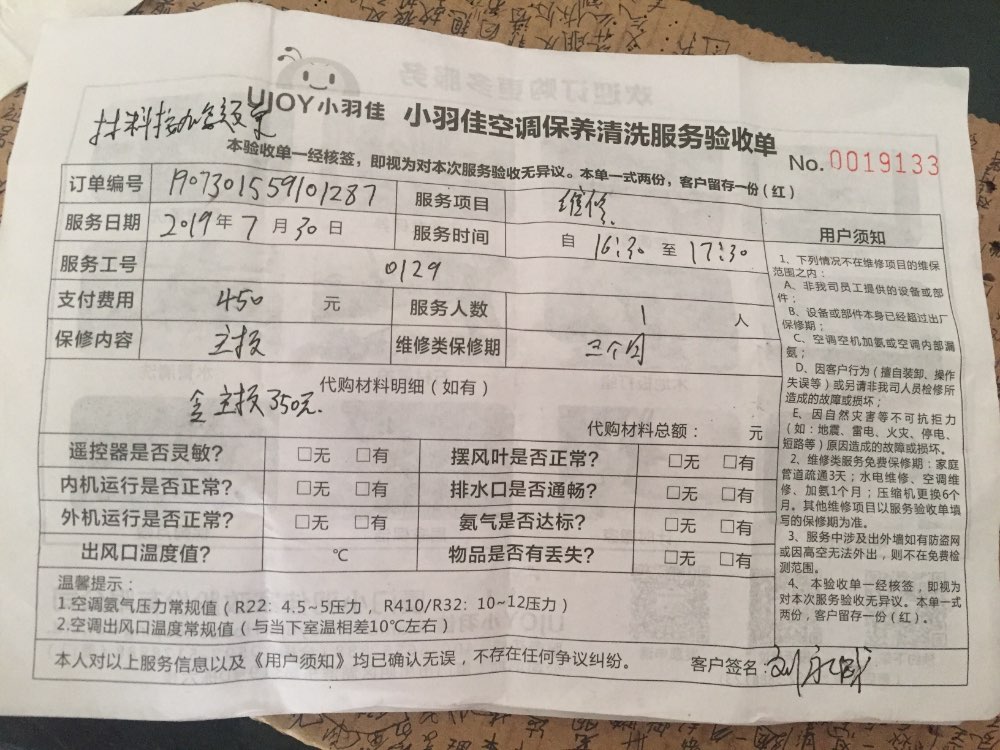 UJOY小羽佳 小羽佳空调保养清洗服务验收单
No.0019133
本验收单一经核签，即视为对本次服务验收无异议。本单一式两份，客户留存一份（红）
订单编号 1907301559101287 服务项目 维修
服务日期 2019年7月30日 服务时间 自 16:30 至 17:30
服务工号 0129
支付费用 450 元 服务人数 1 人
保修内容 主板 维修类保修期 三个月
代购材料明细（如有）
含主板350元.
代购材料总额： 元
遥控器是否灵敏? □无 □有 摆风叶是否正常? □无 □有
内机运行是否正常? □无 □有 排水口是否通畅? □无 □有
外机运行是否正常? □无 □有 氨气是否达标? □无 □有
出风口温度值? ℃ 物品是否有丢失? □无 □有
温馨提示：
1.空调氨气压力常规值（R22：4.5~5压力，R410/R32：10~12压力）
2.空调出风口温度常规值（与当下室温相差10℃左右）
本人对以上服务信息以及《用户须知》均已确认无误，不存在任何争议纠纷。 客户签名：
用户须知
1、下列情况不在维修项目的维保
范围之内：
A、非我司员工提供的设备或部
件；
B、设备或部件本身已经超过出厂
保修期；
C、空调空机加氨或空调内部漏
氨；
D、因客户行为（擅自装卸、操作
失误等）或另请非我司人员检修所
造成的故障或损坏；
E、因自然灾害等不可抗拒力
（如：地震、雷电、火灾、停电、
短路等）原因造成的故障或损坏。
2、维修类服务免费保修期：家庭
管道疏通3天；水电维修、空调维
修、加氨1个月；压缩机更换6个
月。其他维修项目以服务验收单填
写的保修期为准。
3、服务中涉及出外墙如有防盗网
或因高空无法外出，则不在免费检
测范围。
4、本验收单一经核签，即视为
对本次服务验收无异议。本单一式
两份，客户留存一份（红）。